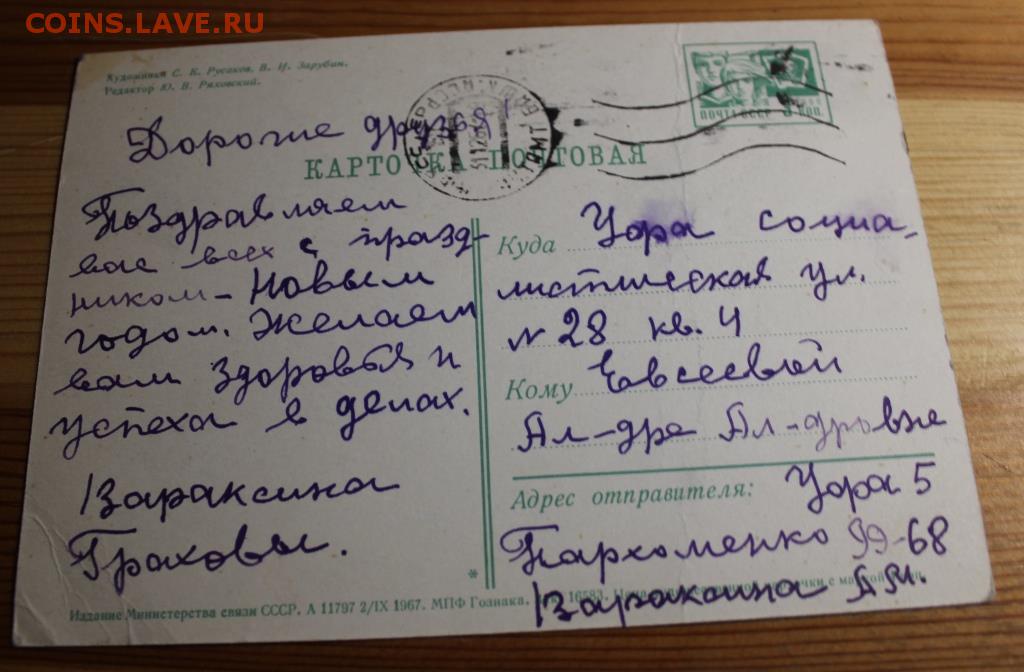 COINS.LAVE.RU
Художники С. К. Русаков, В. И. Зарубин.
Редактор Ю. В. Ряховский.
ПОЧТА СССР КОП.
Дорогие друзья!
КАРТОЧКА ПОЧТОВАЯ
Поздравляем
вас всех с празд-
ником – Новым
годом. Желаем
вам здоровья и
успеха в делах.
Вараксина
Граховы.
Куда Уфа социа-
листическая ул.
№ 28 кв. 4
Кому Евсеевой
Ал-дре Ал-дровне
Адрес отправителя: Уфа 5
Пархоменко 99-68
Вараксина
*
Издание Министерства связи СССР. А 11797 2/IX 1967. МПФ Гознака. 16583. с